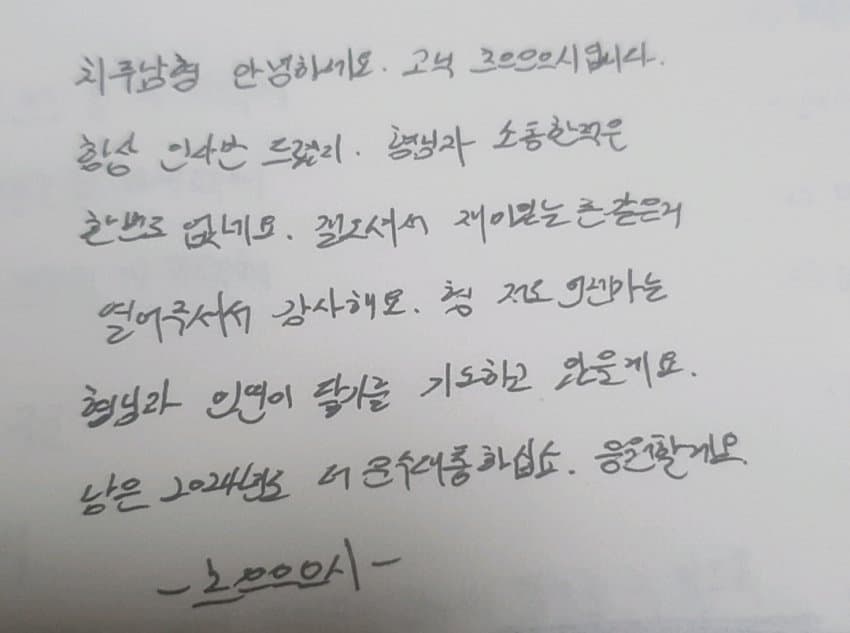 치주남형 안녕하세요. 고닉 크으으으시입니다.
항상 인사만 드렸지. 형님과 소통한적은
한번도 없네요. 질도셔서 재미있는 큰같은거
열어주셔서 감사해요. 형 저도 언젠가는
형님과 인연이 닿기를 기도하고 있을게요.
남은 2024년도 더 운수대통하십쇼. 응원할게요.